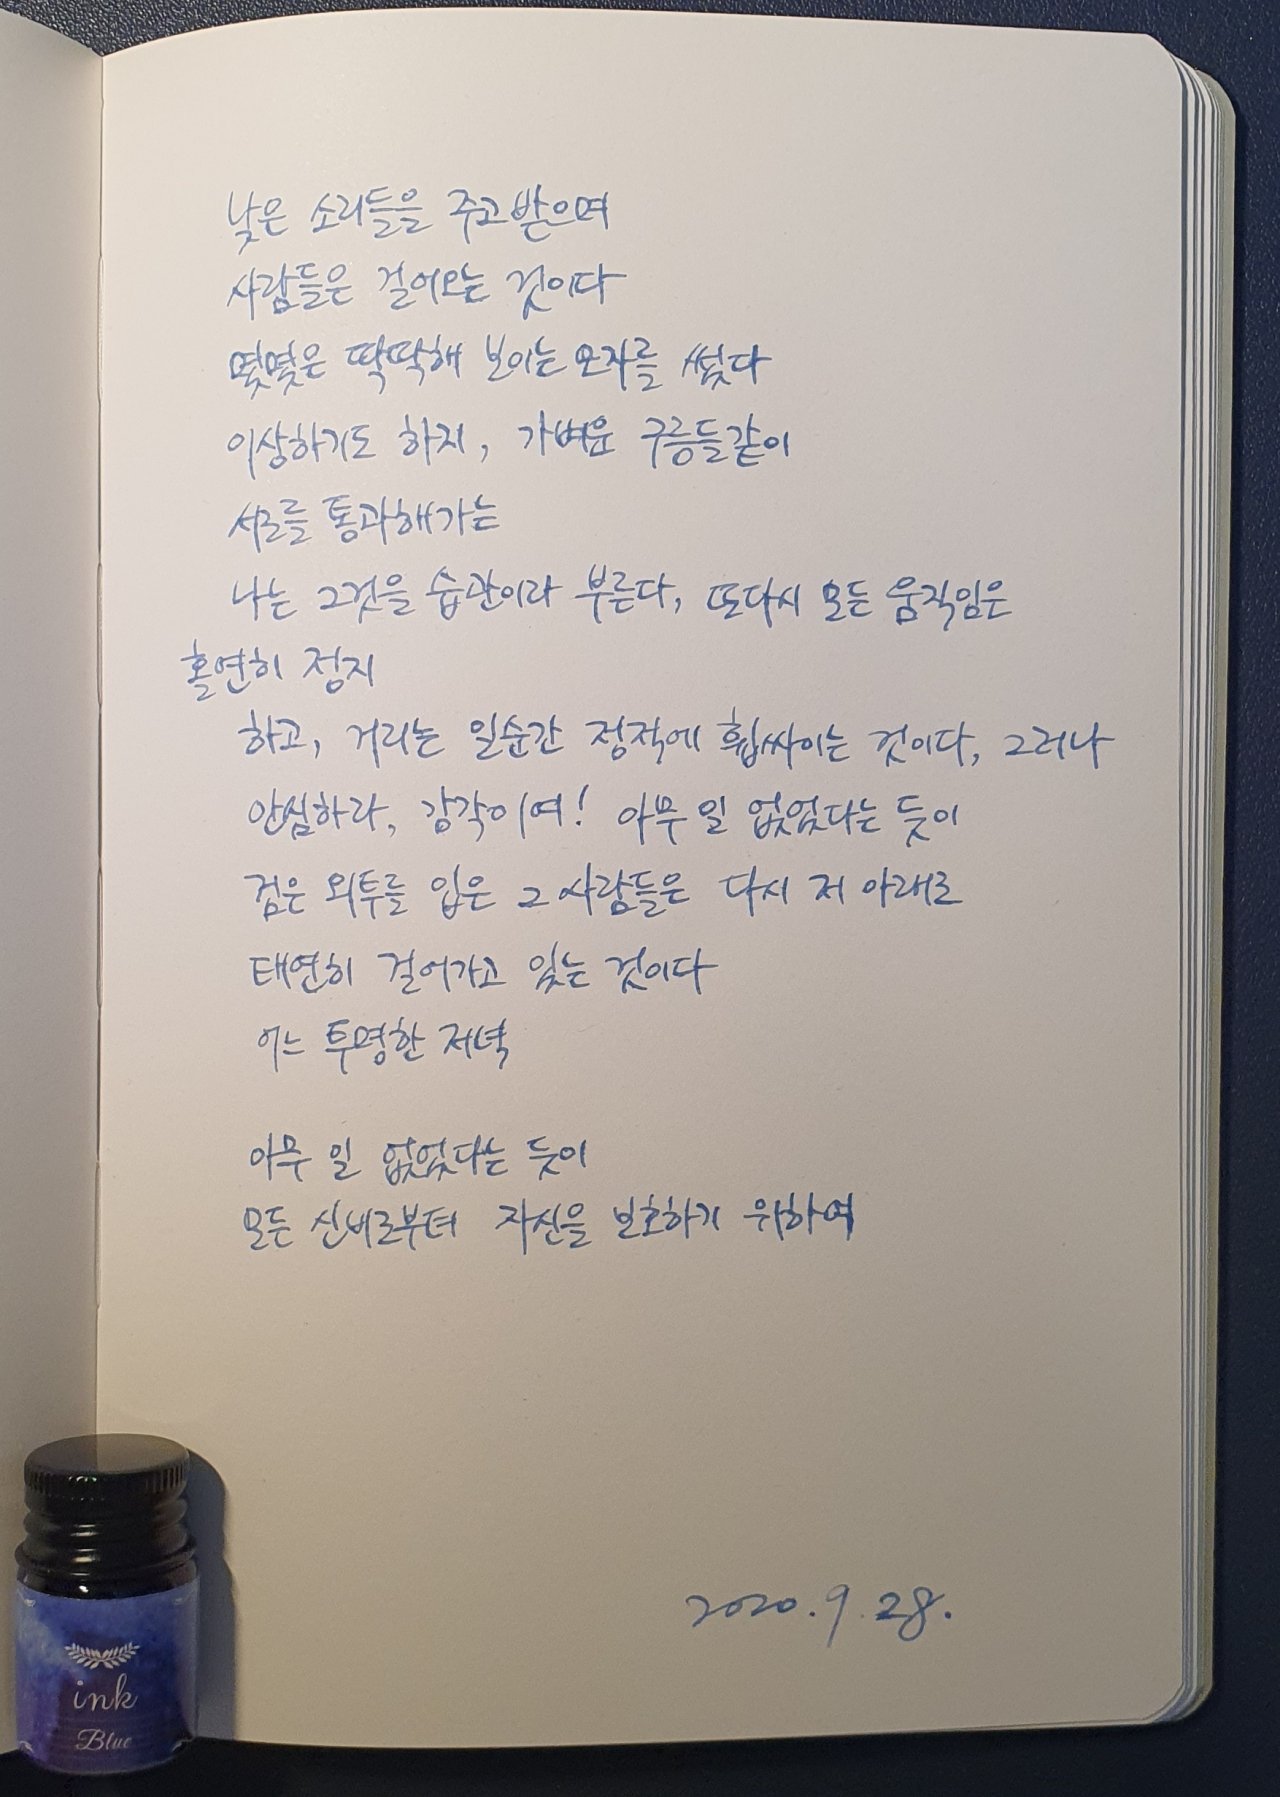 낮은 소리들을 주고받으며
사람들은 걸어오는 것이다
몇몇은 딱딱해 보이는 모자를 썼다
이상하기도 하지, 가벼운 구름들같이
서로를 통과해가는
나는 그것을 습관이라 부른다, 또다시 모든 움직임은
홀연히 정지
하고, 거리는 일순간 정적에 휩싸이는 것이다, 그러나
안심하라, 감각이여! 아무 일 없었다는 듯이
검은 외투를 입은 그 사람들은 다시 저 아래로
태연히 걸어가고 있는 것이다
어느 투명한 저녁
아무 일 없었다는 듯이
모든 신비로부터 자신을 보호하기 위하여
2020. 9. 28.
ink
Blue